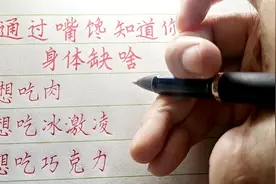 通过嘴馋知道你
身体缺啥
想吃肉
想吃冰激凌
想吃巧克力